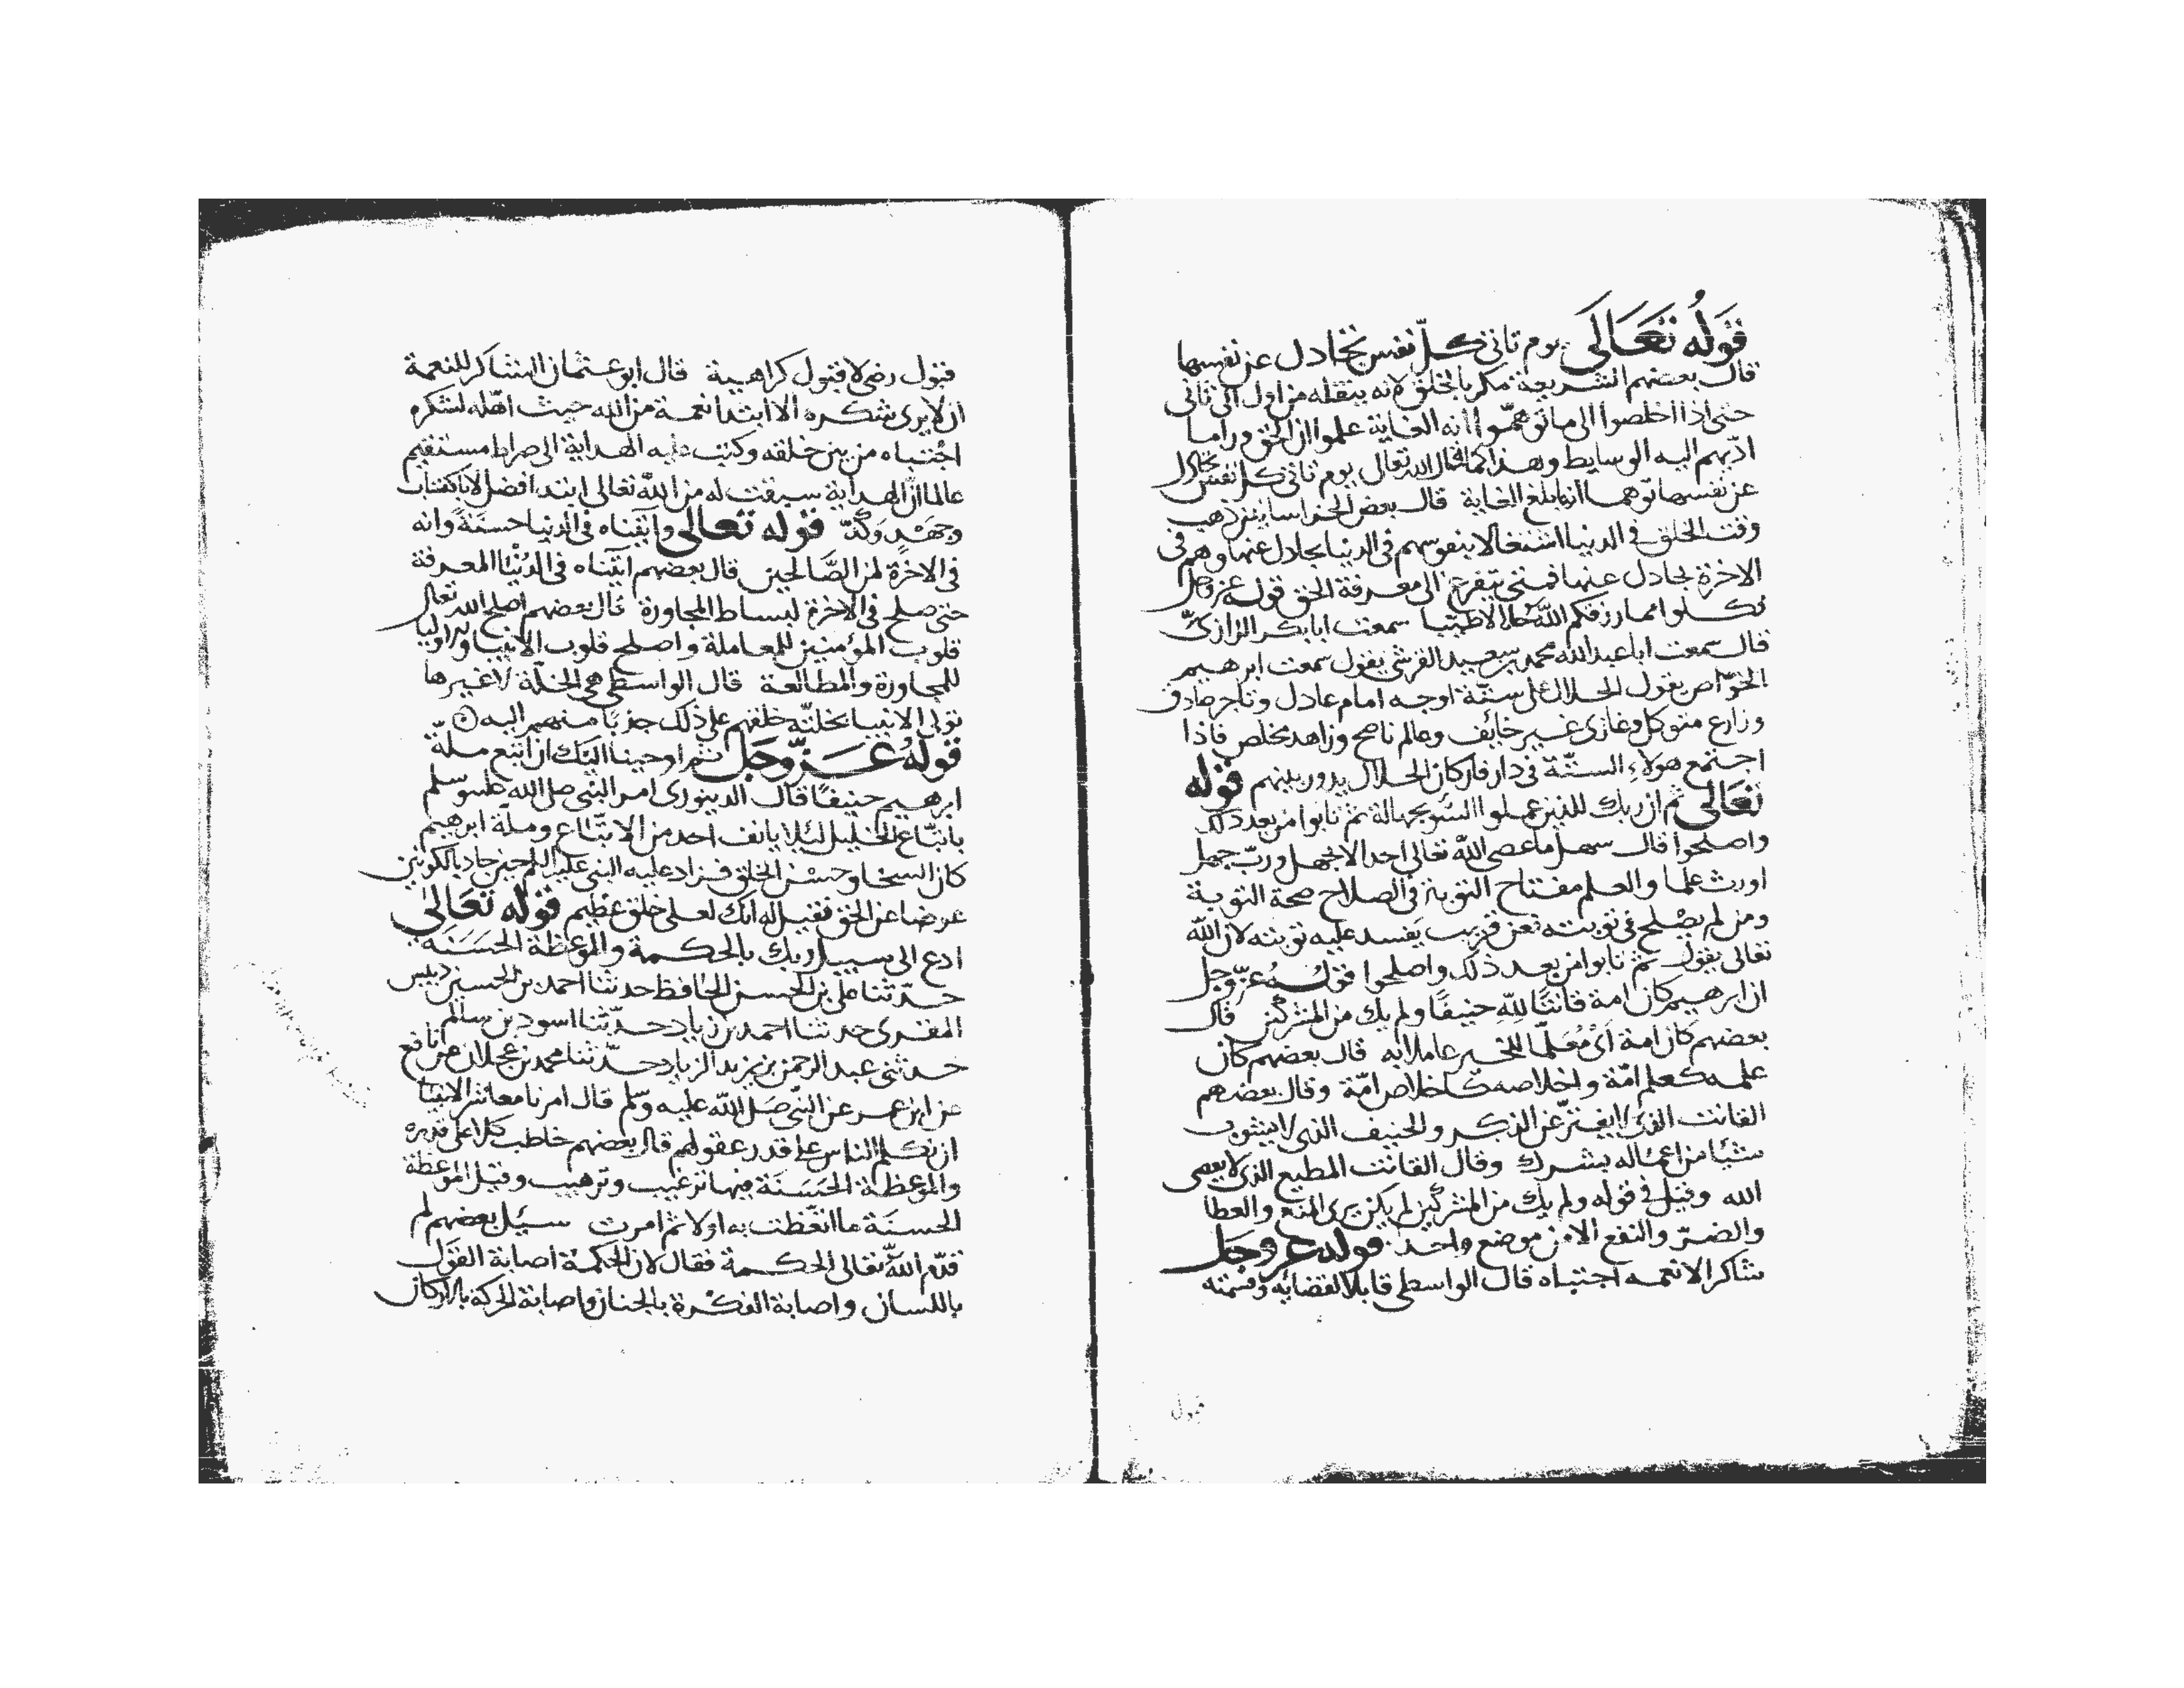 قوله تعالى يوم تاتي كل نفس تجادل عن نفسها
قال بعضهم الشريعة مكر بالخلق لانه ينقله من اول الى ثاني
حتى اذا اخلصوا الى ما توهموا انه الغاية علموا ان الحق وراما
اديهم اليه الوسايط وهذا كما قال الله تعالى يوم تاتي كل نفس تجادل
عن نفسها توهما انه ابلغ الغاية قال بعض الخراسانيين ذهب
وقت الخلق في الدنيا اشتغالا بنفوسهم في الدنيا يجادل عنها وهو في
الاخرة يجادل عنها فمتى يتفرغ الى معرفة الحق قوله عز وجل
فكلوا مما رزقكم الله حلالا طيبا سمعت ابا بكر الرازي
قال سمعت ابا عبد الله محمد بن سعيد القرشي يقول سمعت ابرهيم
الخواص يقول الحلال على ستة اوجه امام عادل وتاجر صادق
وزارع متوكل وغازي غير خايف وعالم ناصح وزاهد مخلص فاذا
اجتمع هولاء الستة في دار فان كان الحلال يدور بينهم قوله
تعالى ثم ان ربك للذين عملوا السو بجهالة ثم تابوا من بعد ذلك
واصلحوا قال سهل ما عصى الله تعالى احد الا بجهل ورب جهل
اورث علما والعلم مفتاح التوبة في الصلاح صحة التوبة
ومن لم يصلح في توبته فعن قريب يفسد عليه توبته لان الله
تعالى يقول ثم تابوا من بعد ذلك واصلحوا قوله عز وجل
ان ابرهيم كان امة قانتا لله حنيفا ولم يك من المشركين قال
بعضهم كان امة اي معلما للخير عاملا به قال بعضهم كان
علمه كعلم امة واخلاصه كاخلاص امة وقال بعضهم
القانت الذي لا يفتر عن الذكر والحنيف الذي لا يشوب
شيئا من اعماله بشرك وقال القانت المطيع الذي لا يعصي
الله وقيل في قوله ولم يك من المشركين لم يكن يرى المنع والعطا
والضر والنفع الا من موضع واحد قوله عز وجل
شاكرا لانعمه اجتباه قال الواسطي قابلا لقضايه وقسمته
قبول
قبول رضى لا قبول كراهية قال ابو عثمان الشاكر للنعمة
ان لا يرى شكره الا ابتدا نعمة من الله حيث اهله لشكره
اجتباه من بين خلقه وكتب عليه الهداية الى صراط مستقيم
عالما ان الهداية سبقت له من الله تعالى ابتدا فضل لا باكتساب
وجهد وكد قوله تعالى وآتيناه في الدنيا حسنة وانه
في الاخرة لمن الصالحين قال بعضهم آتيناه في الدنيا المعرفة
حتى صلح في الاخرة لبساط المجاورة قال بعضهم اصلح الله تعالى
قلوب المؤمنين للمعاملة واصلح قلوب الانبيا والاوليا
للمجاورة والمطالعة قال الواسطي هي الخلة لا غيرها
تولى الانبيا بخلته خلقهم على ذلك جذبا منهم اليه
قوله عز وجل ثم اوحينا اليك ان اتبع ملة
ابرهيم حنيفا قال الدينوري امر النبي صلى الله عليه وسلم
باتباع الخليل ليلا يانف احد من الاتباع وملة ابرهيم
كان السخا وحسن الخلق فزاد عليه النبي عليه السلم حين جاد بالكونين
عوضا عن الحق فقيل له انك لعلى خلق عظيم قوله تعالى
ادع الى سبيل ربك بالحكمة والموعظة الحسنة
حدثنا علي بن الحسن الحافظ حدثنا احمد بن الحسين دبيس
المقرى حدثنا احمد بن زياد حدثنا اسود بن سالم
حدثني عبد الرحمن بن يزيد الزياد حدثنا محمد بن عجلان عن نافع
عن ابن عمر عن النبي صلى الله عليه وسلم قال امرنا معاشر الانبيا
ان نكلم الناس على قدر عقولهم قال بعضهم خاطب كلا على قدره
والموعظة الحسنة فيها ترغيب وترهيب وقيل الموعظة
الحسنة ما اتعظت به اولا ثم امرت سئيل بعضهم لم
قدم الله تعالى الحكمة فقال لان الحكمة اصابة القول
باللسان واصابة الفكرة بالجنان واصابة الحركة بالاركان